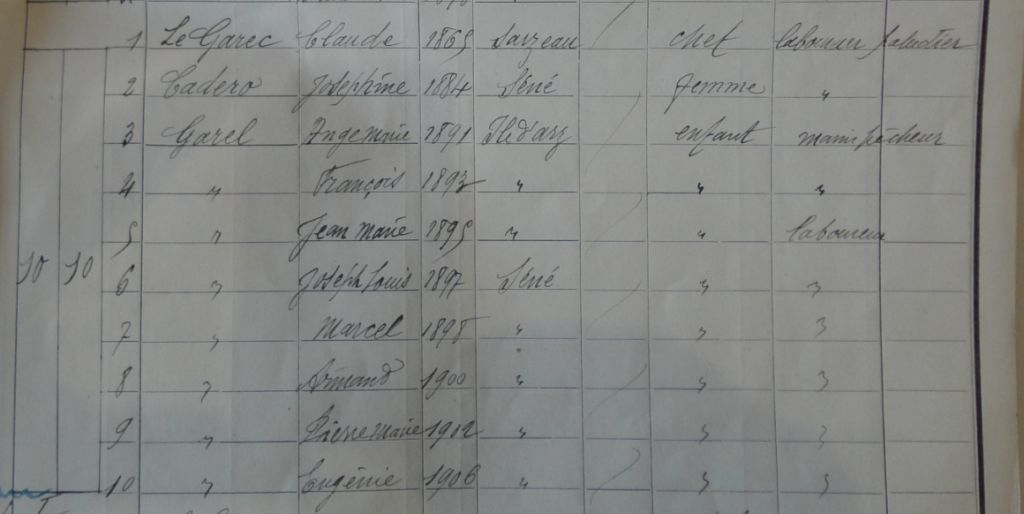 1 Le Garec Claude 1865 Sarzeau chef laboureur paludier
2 Cadero Joséphine 1884 Séné femme "
3 Garel Ange Marie 1891 Ile d'arz enfant marin pêcheur
4 " François 1893 " " "
5 " Jean Marie 1895 " " laboureur
10 10 6 " Joseph Louis 1897 Séné " "
7 " Marcel 1898 " " "
8 " Armand 1900 " " "
9 " Pierre Marie 1902 " " "
10 " Eugénie 1906 " " "